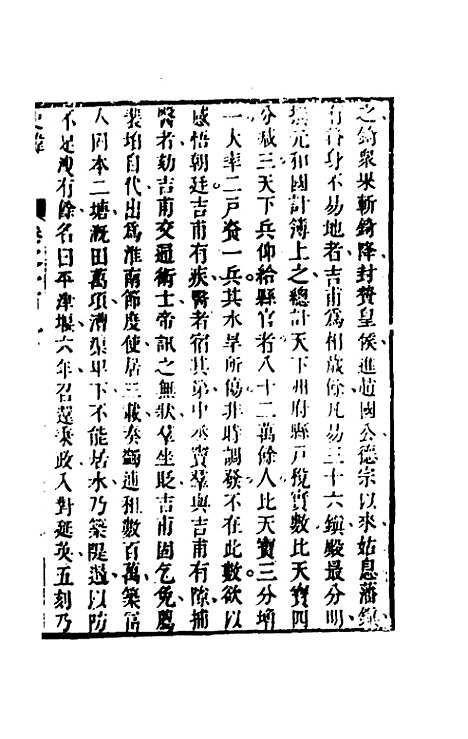 之錡衆果斬錡降封贊皇侯進趙國公德宗以來姑息藩鎮
有終身不易地者吉甫爲相歲餘凡易三十六鎮殿最分明
撰元和國計簿上之總計天下州府縣戸稅實數比天寶四
分減三天下兵仰給縣官者八十二萬餘人比天寶三分增
一大率二戸資一兵其水旱所傷非時調發不在此數欲以
感悟朝廷吉甫有疾醫者宿其第中丞竇羣與吉甫有隙捕
醫者劾吉甫交通術士帝訊之無狀羣坐貶吉甫固乞免薦
裴垍自代出爲淮南節度使居三載奏蠲逋租數百萬築富
人固本二塘溉田萬項漕渠𤰞下不能居水乃築隄遏以防
不足洩有餘名曰平津堰六年召還秉政入對延英五刻乃
史緯